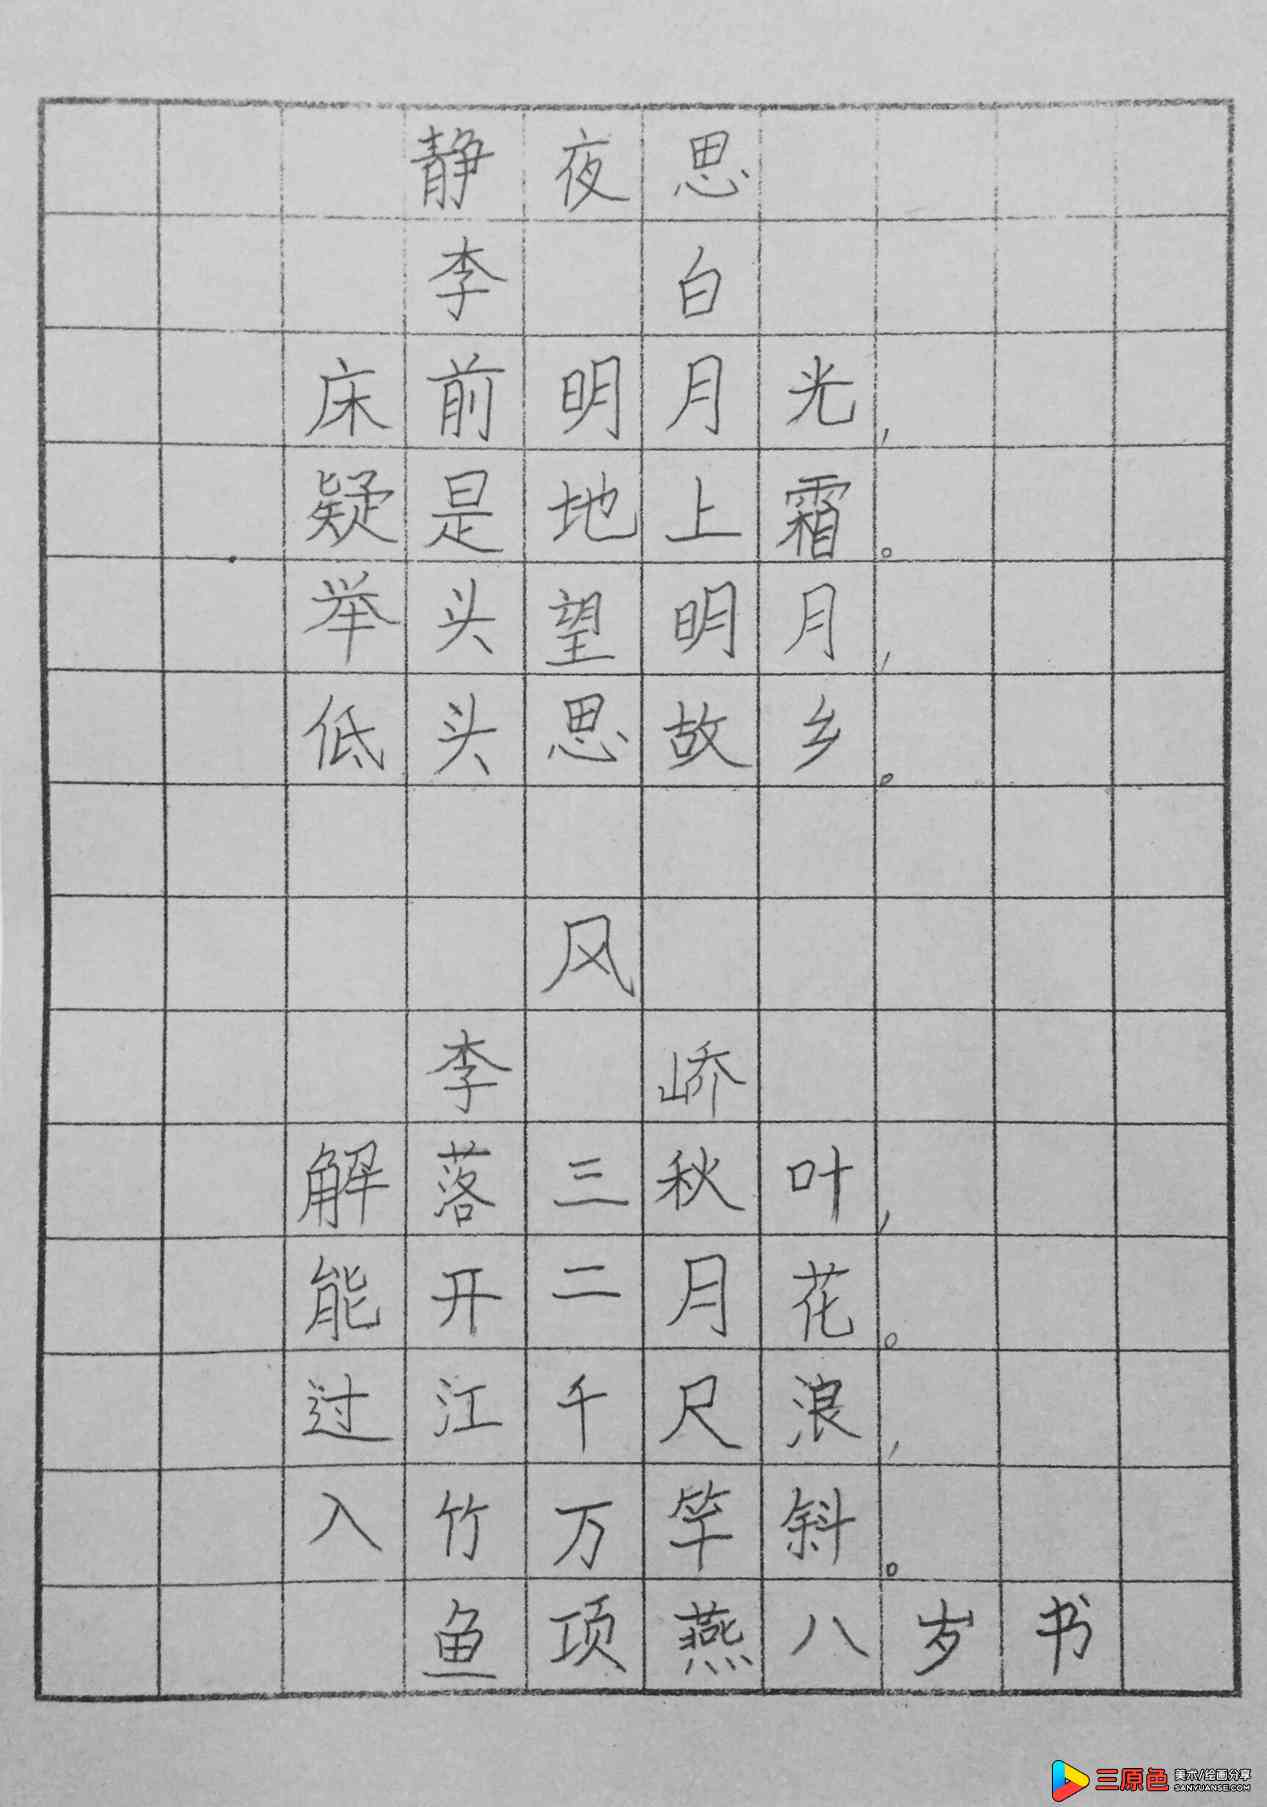 静夜思
李 白
床前明月光，
疑是地上霜。
举头望明月，
低头思故乡。
风
李 峤
解落三秋叶，
能开二月花。
过江千尺浪，
入竹万竿斜。
鱼项燕八岁书
三原色 美术/绘画分享
SANYUANSE.COM